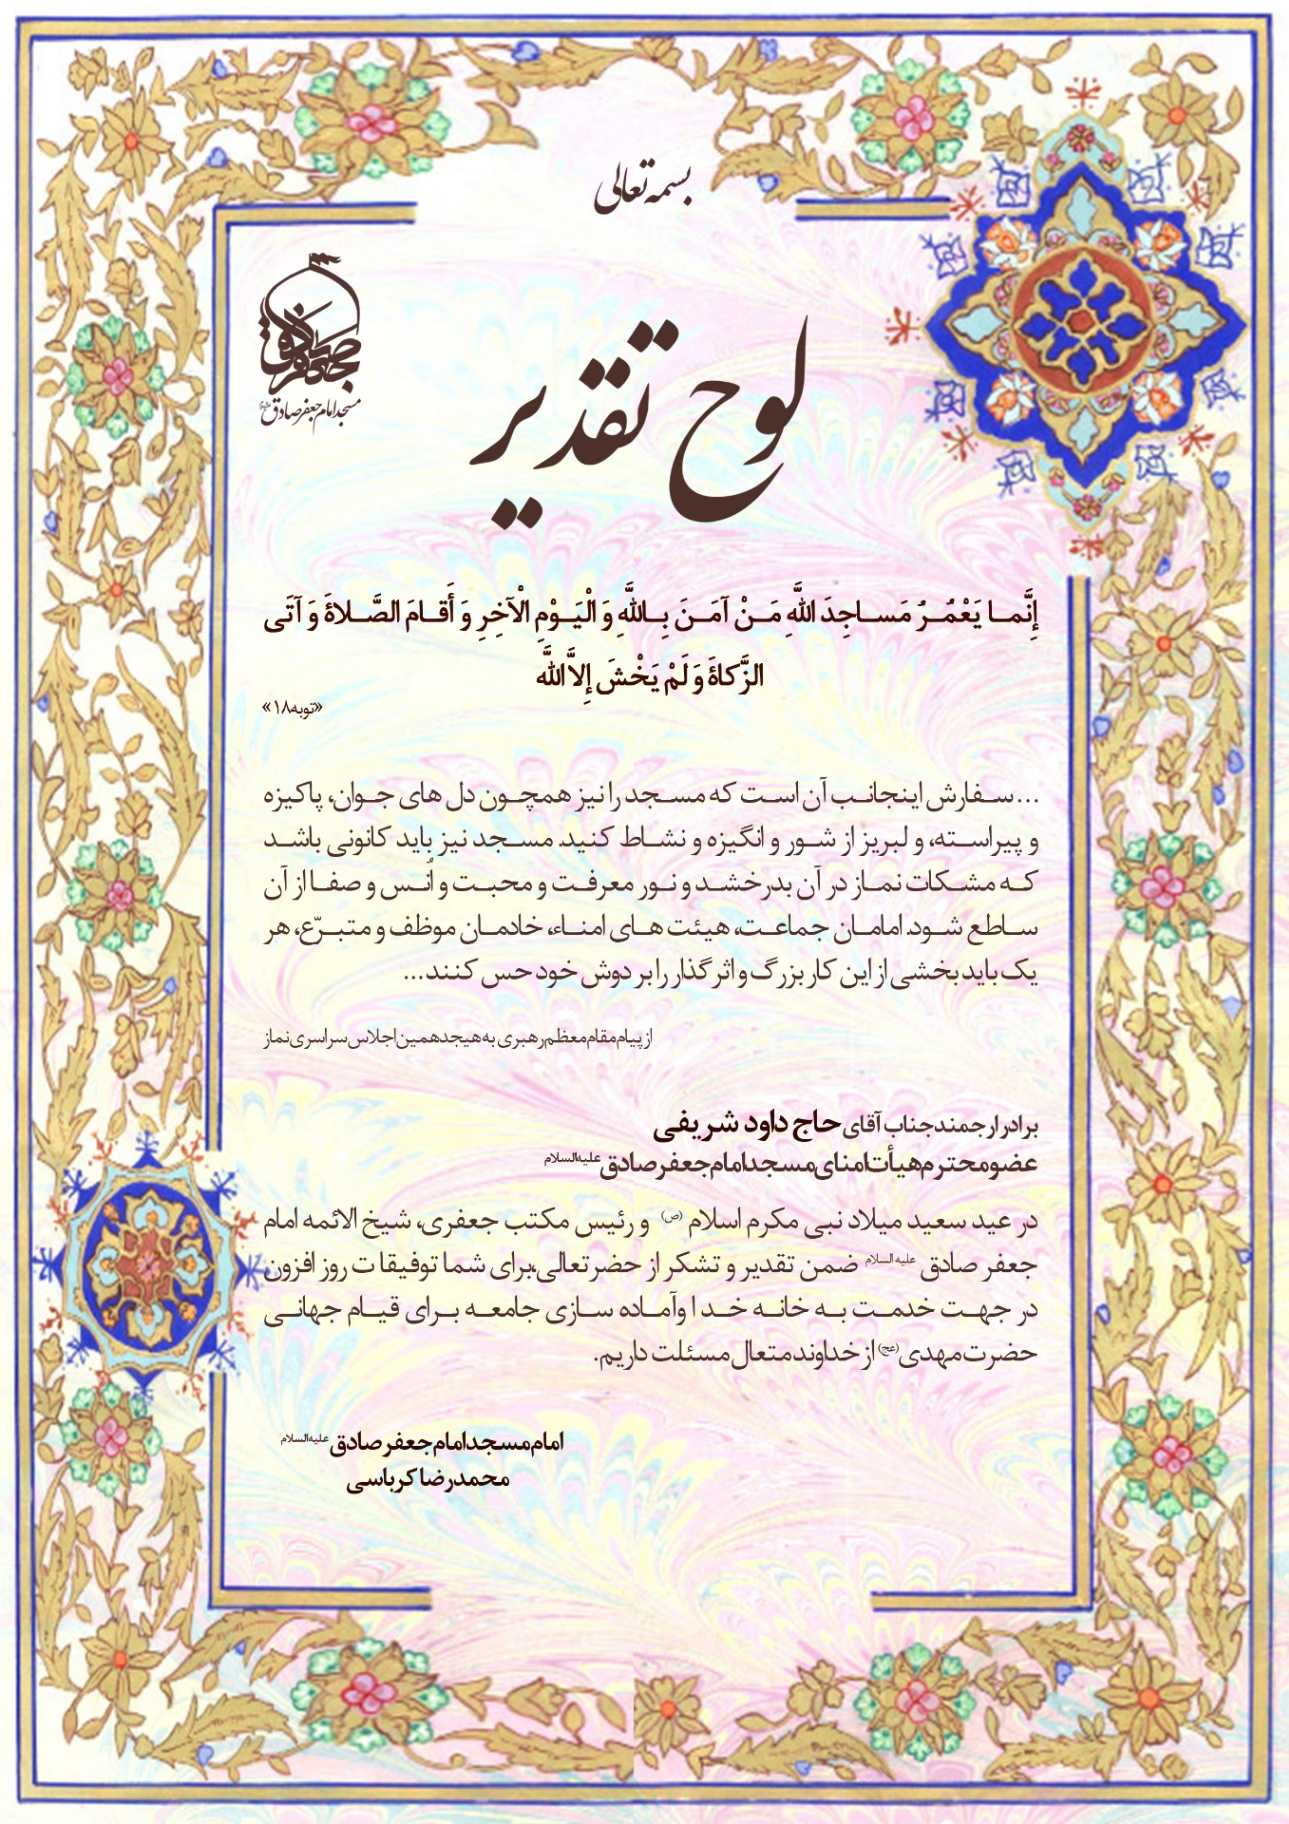 بسمه تعالی
لوح تقدیر
مسجد امام جعفر صادق
إِنَّما يَعْمُرُ مَساجِدَ اللَّهِ مَنْ آمَنَ بِاللَّهِ وَ الْيَوْمِ الْآخِرِ وَ أَقامَ الصَّلاةَ وَ آتَى
الزَّكاةَ وَ لَمْ يَخْشَ إِلاَّ اللَّه
«توبه۱۸»
...سفارش اینجانب آن است که مسجد را نیز همچون دل های جوان، پاکیزه
و پیراسته، و لبریز از شور و انگیزه و نشاط کنید. مسجد نیز باید کانونی باشد
که مشکات نماز در آن بدرخشد و نور معرفت و محبت و اُنس و صفا از آن
ساطع شود. امامان جماعت، هیئت های امناء، خادمان موظف و متبرّع، هر
یک باید بخشی از این کار بزرگ و اثر گذار را بر دوش خود حس کنند...
از پیام مقام معظم رهبری به هیجدهمین اجلاس سراسری نماز
برادر ارجمند جناب آقای حاج داود شریفی
عضو محترم هیأت امنای مسجد امام جعفر صادق علیه السلام
در عید سعید میلاد نبی مکرم اسلام (ص) و رئیس مکتب جعفری، شیخ الائمه امام
جعفر صادق علیه السلام ضمن تقدیر و تشکر از حضرتعالی،برای شما توفیقا ت روز افزون
در جهت خدمت به خانه خد ا وآماده سازی جامعه برای قیام جهانی
حضرت مهدی(عج) از خداوند متعال مسئلت داریم.
امام مسجد امام جعفر صادق علیه السلام
محمدرضا کرباسی